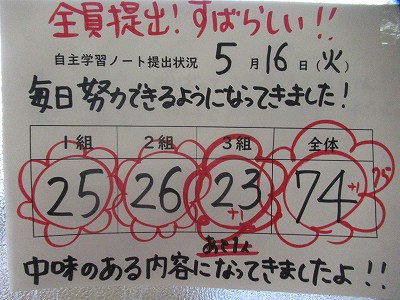 全員提出!すばらしい!!
自主学習ノート提出状況 5月16日(火)
毎日努力できるようになってきました!
1組 2組 3組 全体
25 26 23 74
+1 +1 75
あと1人
中味のある内容になってきましたよ!!